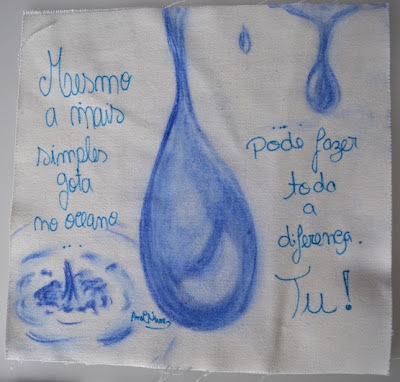 Mesmo
a mais
simples
gota
no oceano
...
...
pode fazer
toda
a
diferença.
Tu!